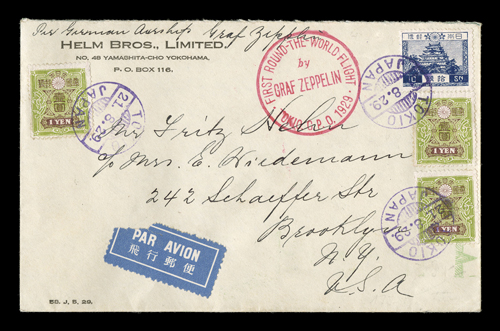 Per German Airship Graf Zeppelin
HELM BROS., LIMITED.
NO. 48 YAMASHITA-CHO YOKOHAMA,
P. O. BOX 116.
FIRST ROUND-THE WORLD FLIGHT
by
GRAF ZEPPELIN
TOKIO G.P.O. 1929
TOKIO
8.29
JAPAN
1 YEN
TOKIO
21.8.29
JAPAN
1 YEN
Mr Fritz Helm
c/o Mrs. E. Wiedemann
242 Schaeffer Str
Brooklyn
N.Y.
U.S.A
1 YEN
TOKIO
8.29
JAPAN
PAR AVION
飛行郵便
5S. J, 5, 29.